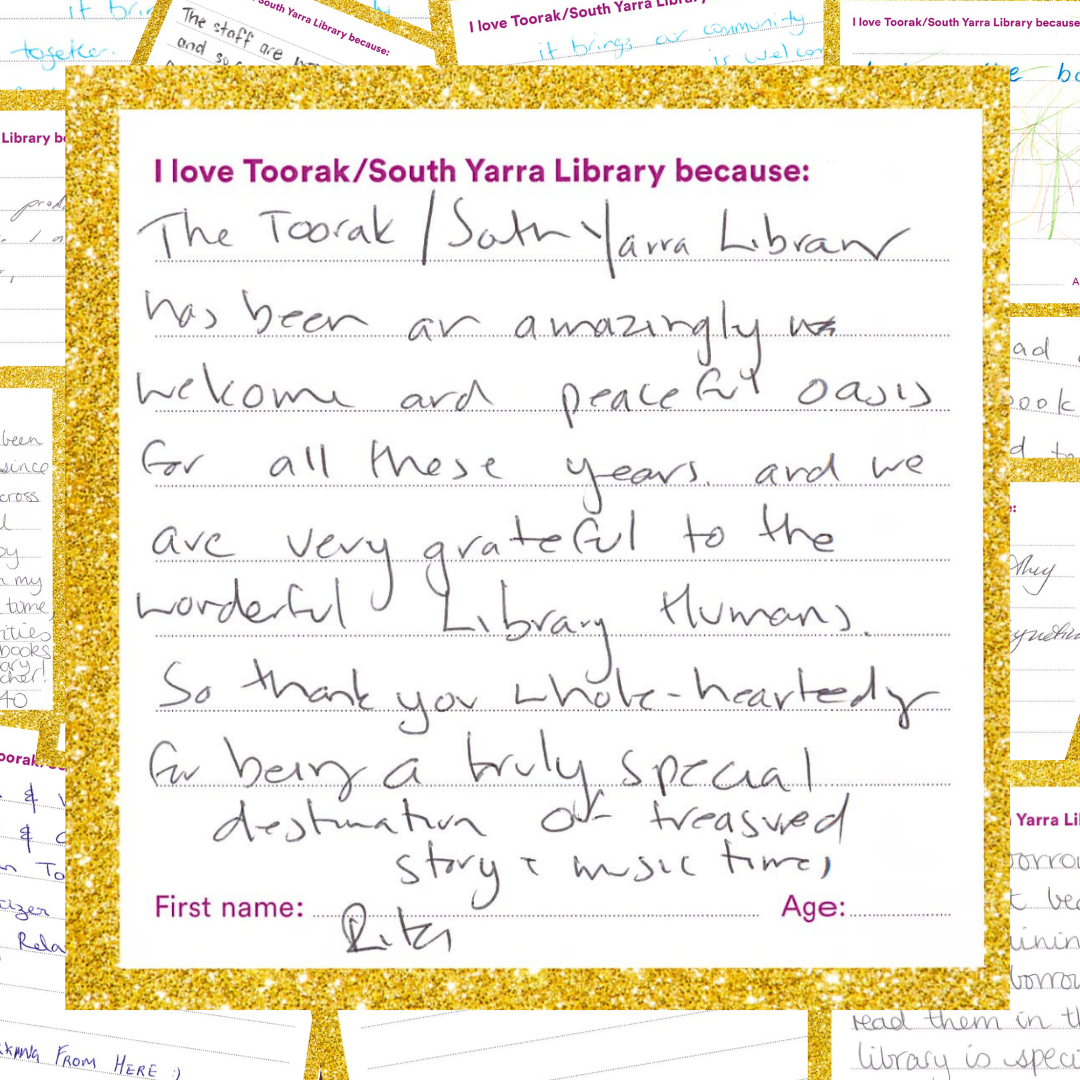 it brin
together.
The staff are
and so
South Yarra Library because:
I love Toorak/South Yarra Library
it brings our community
is welcom
I love Toorak/South Yarra Library because
e bo
Library be
I love Toorak/South Yarra Library because:
The Toorak / South Yarra Library
has been an amazingly
welcome and peaceful oasis
for all these years. and we
are very grateful to the
wonderful Library Humans.
So thank you whole-heartedly
for being a truly special
destination of treasured
story + music times
First name: Rita
Age:
been
since
cross
l
by
n my
time,
ities
books
ary!
cher!
40
A
ad
book
d to
e:
they
oorak/So
&
&
n To
izer
Rela
FROM HERE :)
Yarra Li
borrow
t bec
inin
borrow
read them in th
library is speci